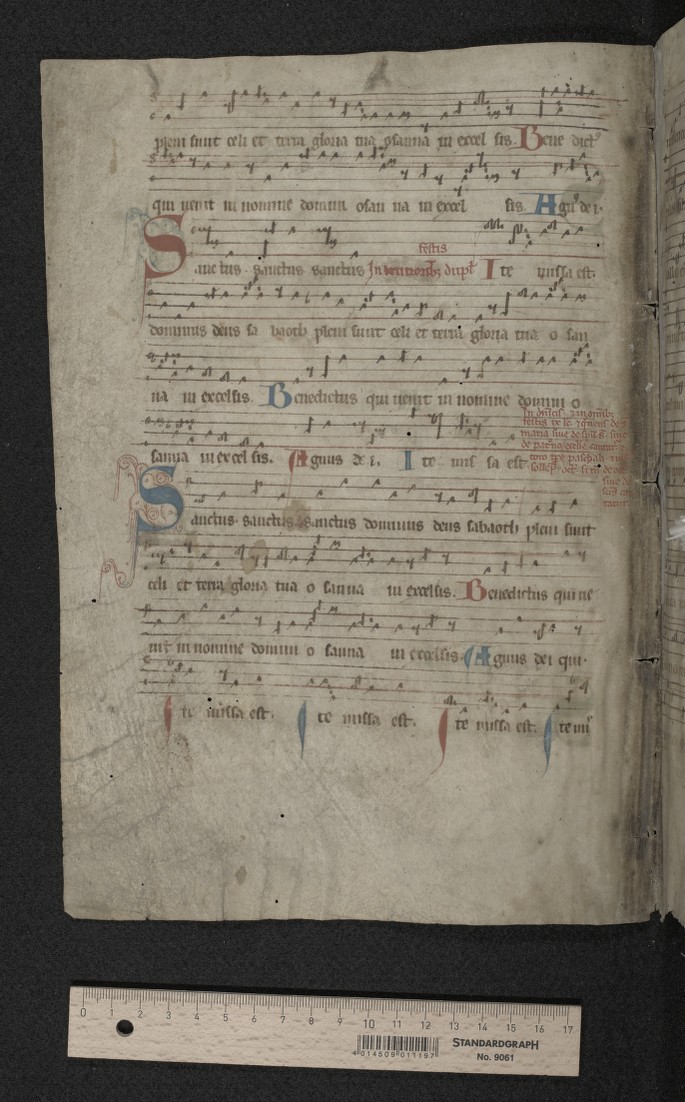 pleni sunt celi et terra gloria tua osanna in excel sis. Bene dict9
qui uenit in nomine domini osan na in excel sis. Agn9 de i.
festis
Sanctus sanctus sanctus In minorib; dupl' Ite missa est.
dominus deus sa baoth pleni sunt celi et terra gloria tua o san
na in excelsis. Benedictus qui uenit in nomine domini o
sanna in excel sis. Agnus de i. Ite mis sa est.
Sanctus sanctus sanctus dominus deus sabaoth pleni sunt
celi et terra gloria tua o sanna in excelsis. Benedictus qui ue
nit in nomine domini o sanna in excelsis. Agnus dei qui.
Ite missa est. Ite missa est. Ite missa est. Ite mi
0 1 2 3 4 5 6 7 8 9 10 11 12 13 14 15 16 17
4 014509 011197
STANDARDGRAPH
No. 9061